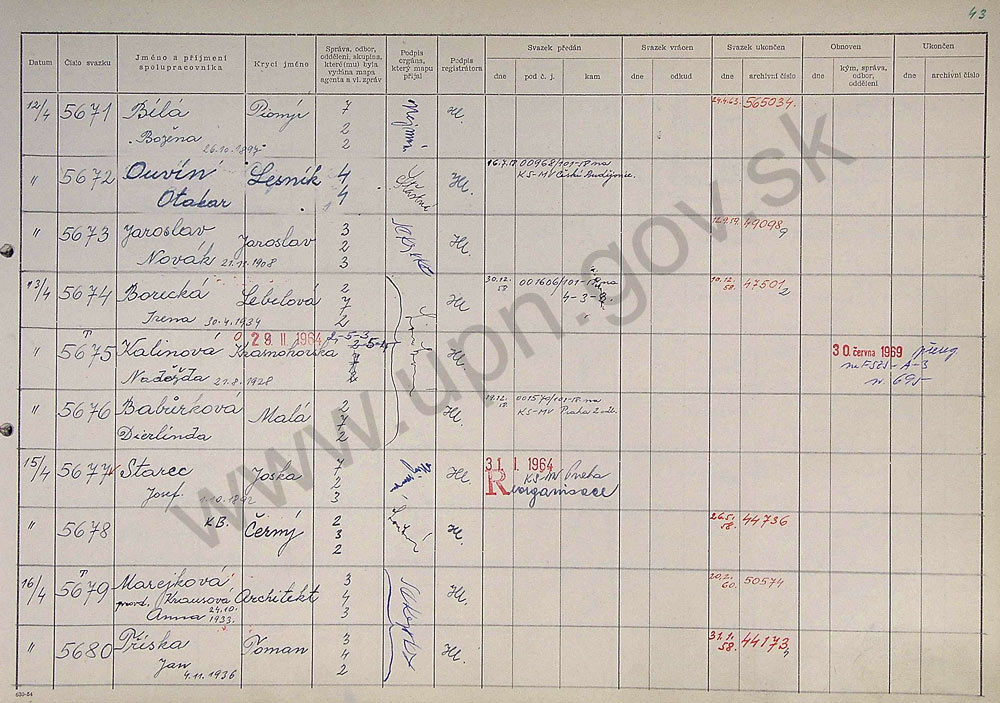 43
Datum Číslo svazku Jméno a příjmení spolupracovníka Krycí jméno Správa, odbor, oddělení, skupina, které(mu) byla vydána mapa agenta a vl. zpráv Podpis orgána, který mapu přijal Podpis registrátora Svazek předán Svazek vrácen Svazek ukončen Obnoven Ukončen
dne pod č. j. kam dne odkud dne archivní číslo dne kým, správa, odbor, oddělení dne archivní číslo
12/4 5671 Bílá Pionýr 7 Hl. 24.4.63. 565034.
Božena 2
26.10.1897 2
" 5672 Ouvín Lesník 4 Hl. 16.7.58 00968/101-58 na
Otakar 4 KS-MV České Budějovice.
" 5673 Jaroslav Jaroslav 3 Hl. 12.9.59. 49098
Novák 21.11.1908 2 9
3
13/4 5674 Borecká Lebelová 2 Hl 30.12.58. 001606/101-58 na 10.12.58. 47501
Irena 30.4.1934 7 4-3-2. 2
2
" T 5675 Kalinová Krasnohorska 29 II 1964 2-5-3 Hl. 30. června 1969
Naděžda 21.8.1928 2 A-3
" 5676 Babůrková Malá 2 Hl 19.12.58 001540/101-58 na
Dierlinda 7 KS-MV Praha
2
15/4 5677 Starec Joska 7 Hl 31. I. 1964 KS-MV Praha
Josef. 1.10.1892 2 Reorganisace
3
" 5678 KB. Černý 2 Hl. 26.5.58. 44736
3
2
16/4 T 5679 Marejková Architekt 3 Hl. 20.2.60. 50574
provd. Krausová 4
Anna 24.10.1933. 3
" 5680 Tříska Toman 3 Hl. 31.1.58. 44173
Jan 4
4.11.1936 2
630-54
www.upn.gov.sk